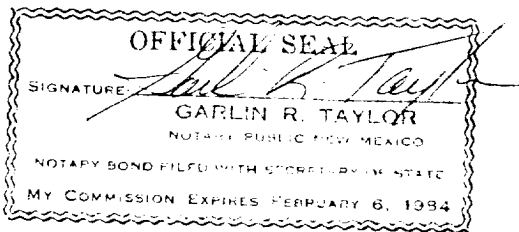 OFFICIAL SEAL
SIGNATURE
GARLIN R. TAYLOR
NOTARY PUBLIC NEW MEXICO
NOTARY BOND FILED WITH SECRETARY OF STATE
MY COMMISSION EXPIRES FEBRUARY 6, 1984